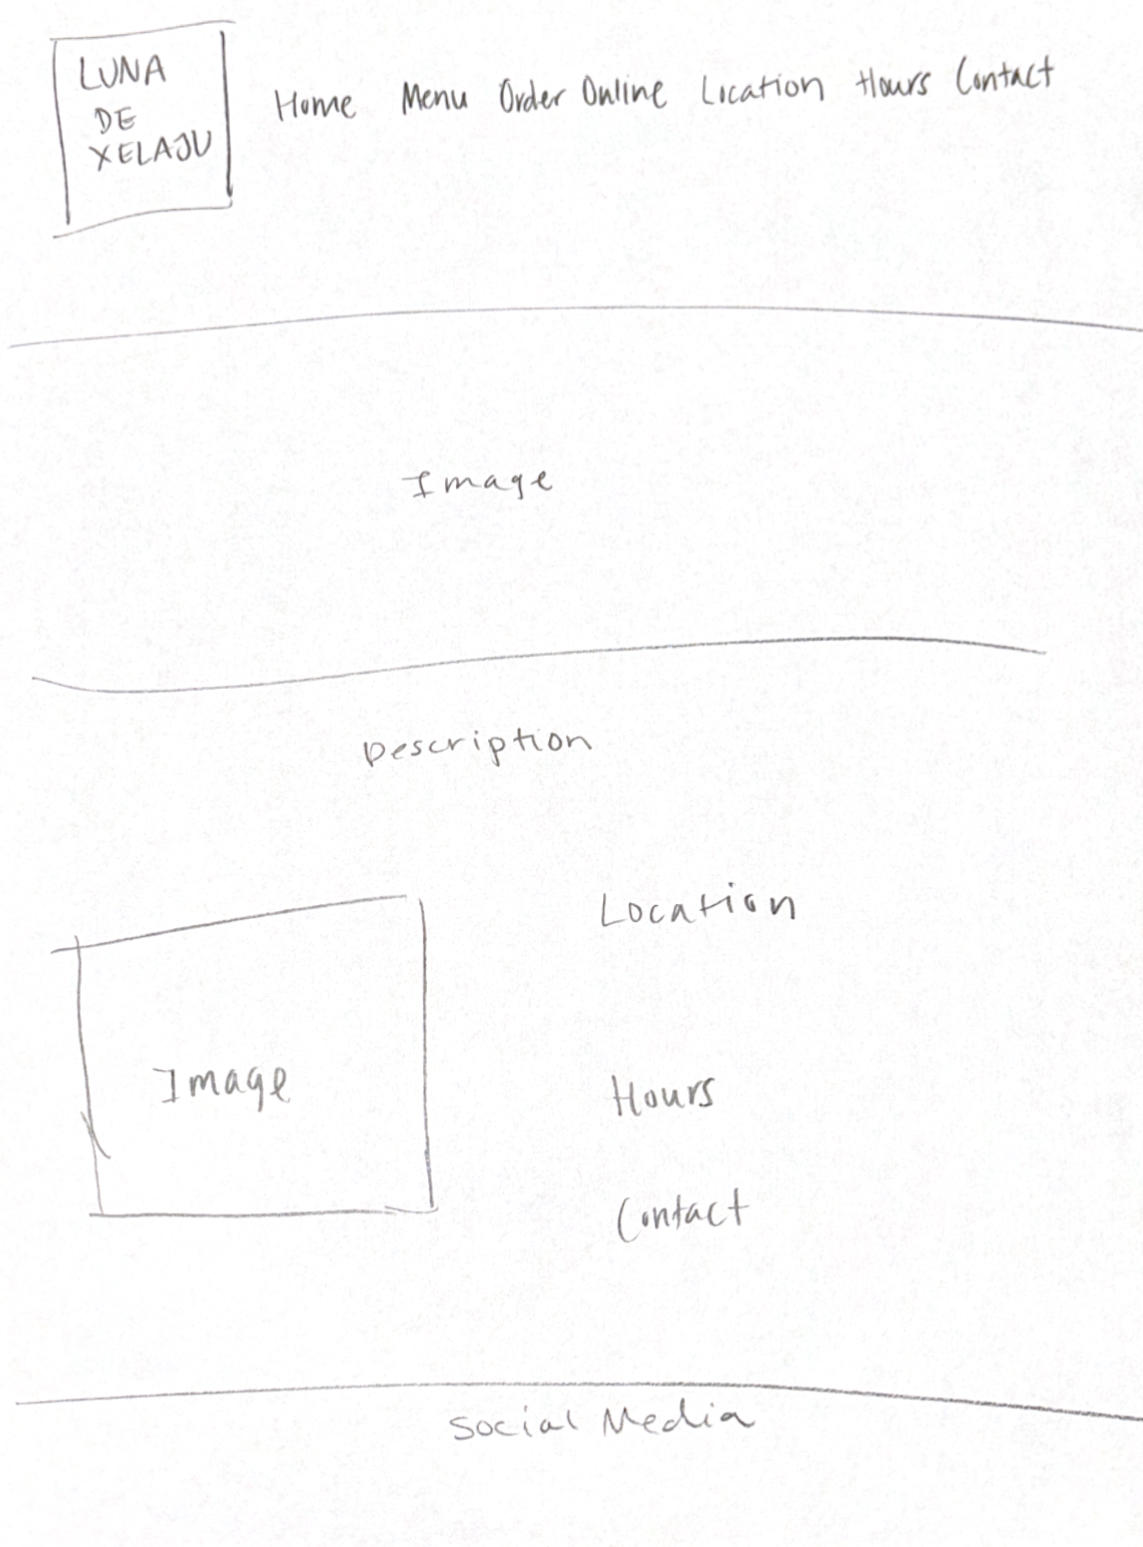 LUNA
DE
XELAJU
Home Menu Order Online Location Hours Contact
Image
Description
Location
Image
Hours
Contact
Social Media